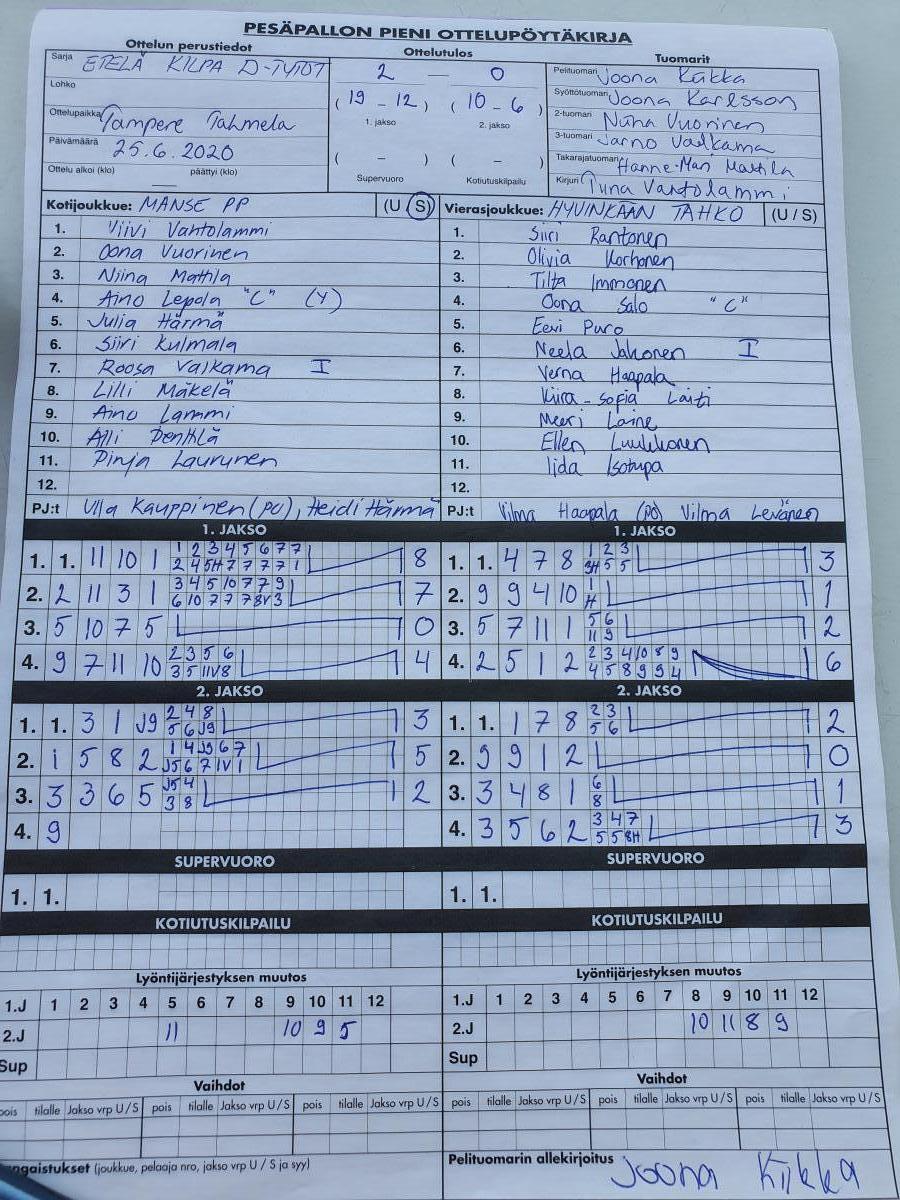 PESÄPALLON PIENI OTTELUPÖYTÄKIRJA
Ottelun perustiedot Ottelutulos Tuomarit
Sarja ETELÄ KILPA D-TYTÖT 2 — 0 Pelituomari Joona Kiikka
Lohko ( 19 - 12 ) ( 10 - 6 ) Syöttötuomari Joona Karlsson
Ottelupaikka Tampere Tahmela 1. jakso 2. jakso 2-tuomari Niina Vuorinen
Päivämäärä 25.6.2020 3-tuomari Jarno Valkama
( - ) ( - ) Takarajatuomari Hanne-Mari Mattila
Ottelu alkoi (klo) — päättyi (klo) Supervuoro Kotiutuskilpailu Kirjuri Tiina Vantolammi
Kotijoukkue: MANSE PP (U / S) Vierasjoukkue: HYVINKÄÄN TAHKO (U / S)
1. Viivi Vantolammi 1. Siiri Rantonen
2. Oona Vuorinen 2. Olivia Korhonen
3. Niina Mattila 3. Tilta Immonen
4. Aino Lepola "C" (Y) 4. Oona Salo "C"
5. Julia Härmä 5. Eevi Puro
6. Siiri Kulmala 6. Neela Jakonen I
7. Roosa Valkama I 7. Verna Haapala
8. Lilli Mäkelä 8. Kiira-Sofia Laiti
9. Aino Lammi 9. Meeri Laine
10. Alli 10. Ellen Luukkonen
11. Pinja Laurunen 11. Iida Isotupa
12. 12.
PJ:t Ulla Kauppinen (PO), Heidi Härmä PJ:t Vilma Haapala (PO) Vilma Levänen
1. JAKSO 1. JAKSO
1. 1. 11 10 1 1 2 3 4 5 6 7 7 8 1. 1. 4 7 8 1 2 3 3
2 4 5H 7 7 7 7 1 3H 5 5
2. 2 11 3 1 3 4 5 10 7 7 9 7 2. 9 9 4 10 1 1
6 10 7 7 7 8V 3 H
3. 5 10 7 5 0 3. 5 7 11 1 5 6 2
11 9
4. 9 7 11 10 2 3 5 6 4 4. 2 5 1 2 2 3 4 10 8 9 6
3 5 11V 8 4 5 8 9 9 4
2. JAKSO 2. JAKSO
1. 1. 3 1 J9 2 4 8 3 1. 1. 1 7 8 2 3 2
5 6 J9 5 6
2. 1 5 8 2 1 4 J9 6 7 5 2. 9 9 1 2 0
J5 6 7 1V 1
3. 3 3 6 5 J5 4 2 3. 3 4 8 1 6 1
3 8 8
4. 9 4. 3 5 6 2 3 4 7 3
5 5 8H
SUPERVUORO SUPERVUORO
1. 1. 1. 1.
KOTIUTUSKILPAILU KOTIUTUSKILPAILU
Lyöntijärjestyksen muutos Lyöntijärjestyksen muutos
1.J 1 2 3 4 5 6 7 8 9 10 11 12 1.J 1 2 3 4 5 6 7 8 9 10 11 12
2.J 11 10 9 5 2.J 10 11 8 9
Sup Sup
Vaihdot Vaihdot
pois tilalle Jakso vrp U / S pois tilalle Jakso vrp U / S pois tilalle Jakso vrp U / S pois tilalle Jakso vrp U / S pois tilalle Jakso vrp U / S pois tilalle Jakso vrp U / S
ngaistukset (joukkue, pelaaja nro, jakso vrp U / S ja syy) Pelituomarin allekirjoitus Joona Kiikka